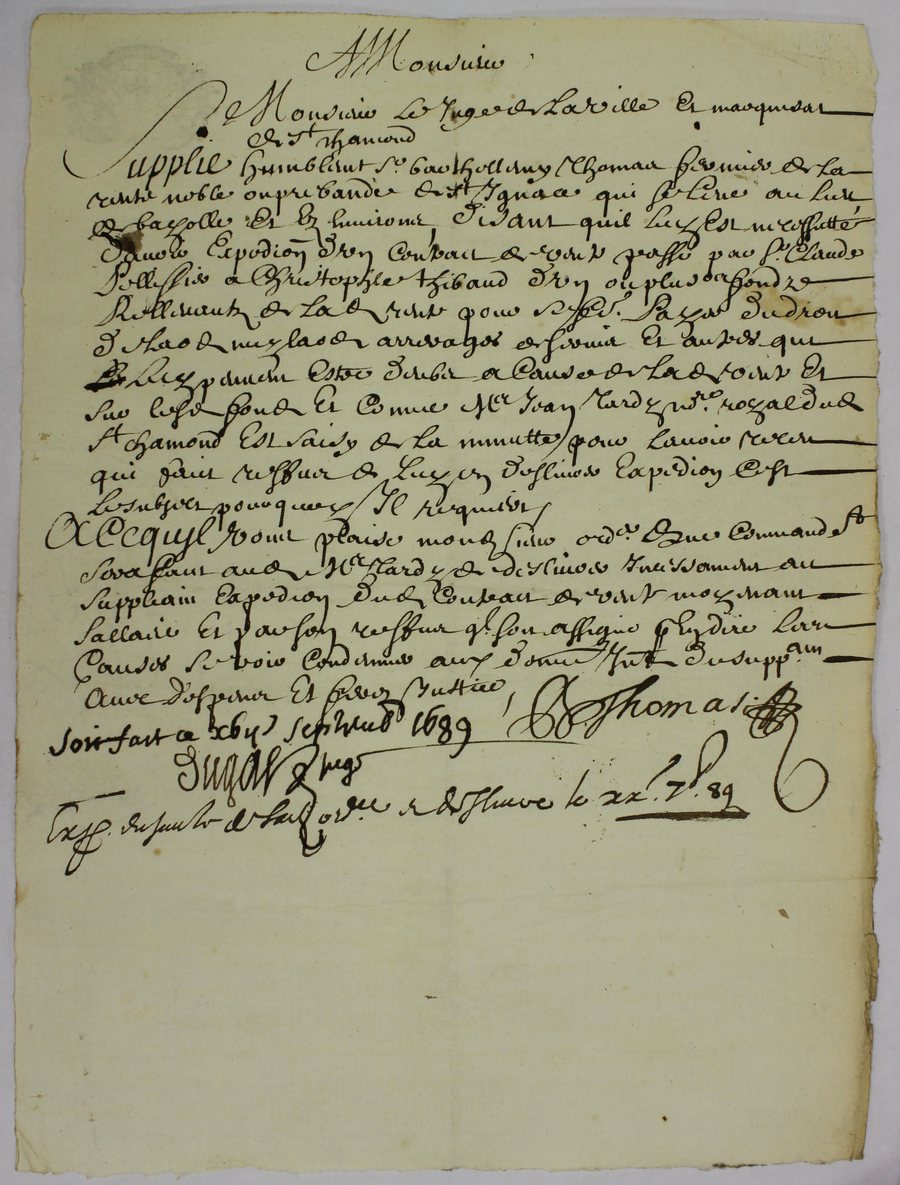 A Monsieur
Monsieur Le Juge de La ville Et marquisat
de St chamond
Supplie humblemt Sr barthollemy Thomas fermier de La
rente noble ou prebande de St Ignace qui se Leve au Lieu
de bazolle Et Es Environs, Disant quil Luy Est necessaire
Davoir Expedion Dun Contract de vente passé par Sr Claude
Pellissier a Christophle thibaud Dun ou plus fondz
de La de rente pour se Payer Du droit
De Laod my laod arrerages de servis Et autres qui
Luy peuvent Estre Deubz a Cause de La de rente Et
Sur lesd fondz Et Comme Me Jean Tardy nore royal dud
St chamond Est saisy de La minutte, pour Lavoir
qui fait reffus de Luy en Deslivrer Expedion Cest
Le subject pourquoy Il requiert
A Ce quil vous plaise mond Sieur ordr que Commandemt
Sera faict aud Me Tardy de deslivrer Incessament au
Suppliant Expedion Dud Contract de vente moyenant
Sallaire Et par son reffus qil soit assigné pr En dire Les
Causes Se voir Condemner aux Dom Intz Du suppant
Avec Despens Et ferez Justice
Thomas
Soit fait ce xbij Septembre 1689
Dugas Juge
Exp. ensuite de Lad ordce et deslivré le xxe 7be 89